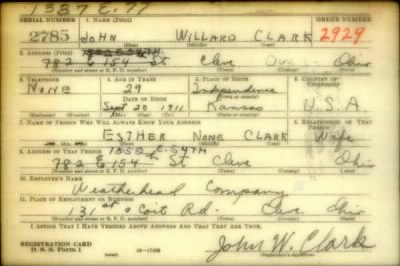 1337 E. 77
SERIAL NUMBER 1. NAME (Print)
2785 JOHN WILLARD CLARK 2929
(First) (Middle) (Last)
2. ADDRESS (Print)
782 E 154 St Cleve Ohio
(Number and street or R. F. D. number) (Town) (County) (State)
3. TELEPHONE 4. AGE IN YEARS 5. PLACE OF BIRTH 6. COUNTRY OF CITIZENSHIP
None 29 Independence
DATE OF BIRTH
Sept 20 1911 Kansas U.S.A.
(Mo.) (Day) (Yr.) (State or county)
7. NAME OF PERSON WHO WILL ALWAYS KNOW YOUR ADDRESS 8. RELATIONSHIP OF THAT PERSON
ESTHER None CLARK Wife
(First) (Middle) (Last)
9. ADDRESS OF THAT PERSON 1355 E. 54TH
782 E 154 St Cleve Ohio
(Number and street or R. F. D. number) (Town) (County) (State)
10. EMPLOYER'S NAME
Weatherhead Company
11. PLACE OF EMPLOYMENT OR BUSINESS
131st & Coit Rd. Cleve. Ohio
(Number and street or R. F. D. number) (Town) (County) (State)
I AFFIRM THAT I HAVE VERIFIED ABOVE ANSWERS AND THAT THEY ARE TRUE.
REGISTRATION CARD
D. S. S. Form 1 John W. Clark
(Registrant's signature)